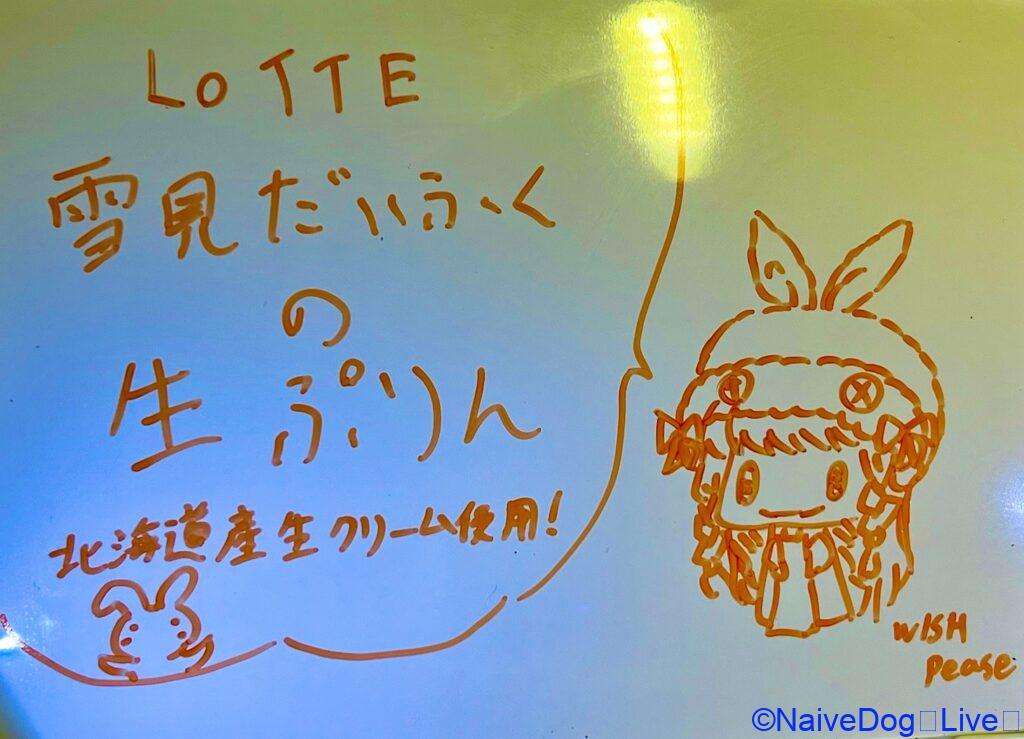 LoTTE
雪見だいふく
の
生ぷりん
北海道産生クリーム使用!
WISH
Pease
©NaiveDog▯Live▯